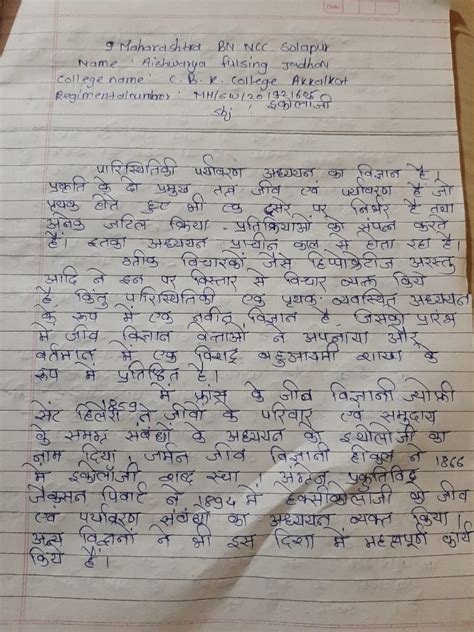 9 Maharashtra BN NCC Solapur
Name : Aishwarya fulsing Jadhav
College name : C. B. K. College Akkalkot
Regimental number : MH/SW/201921695
Sbj : इकोलॉजी
पारिस्थितिकी पर्यावरण अध्ययन का विज्ञान है।
प्रकृति के दो प्रमुख तत्व जीव एवं पर्यावरण है जो
प्रथक होते हुए भी एक दुसरे पर निर्भर है तथा
अनेक जटिल क्रिया-प्रतिक्रियाओं को संपन्न करते
है। इनका अध्ययन प्राचीन काल से होता रहा है।
विचारकों जैसे हिप्पोक्रेटीज अरस्तु
आदि ने इन पर विस्तार से विचार व्यक्त किये
है किंतु पारिस्थितिकी एक प्रथक व्यवस्थित अध्ययन
के रूप में एक नवीन विज्ञान है जिसका प्रारंभ
में जीव विज्ञान वेत्ताओं ने अपनाया और
वर्तमान में एक विशद बहुआयामी शाखा के
रूप में प्रतिष्ठित है।
1859 में फ्रांस के जीव विज्ञानी ज्योफ्री
सेंट हिलेरी ने जीवों के परिवार एवं समुदाय
के समग्र संबंधों के अध्ययन को इथोलॉजी का
नाम दिया, जर्मन जीव विज्ञानी हैकल ने 1866
मे इकोलॉजी शब्द रचा। अंग्रेज प्रकृतिविद
जैक्सन विवार्ट ने 1894 मे हेक्सीकोलॉजी को जीव
एवं पर्यावरण संबंधों का अध्ययन व्यक्त किया।
अन्य विद्वानों ने भी इस दिशा में महत्वपूर्ण कार्य
किये हैं।